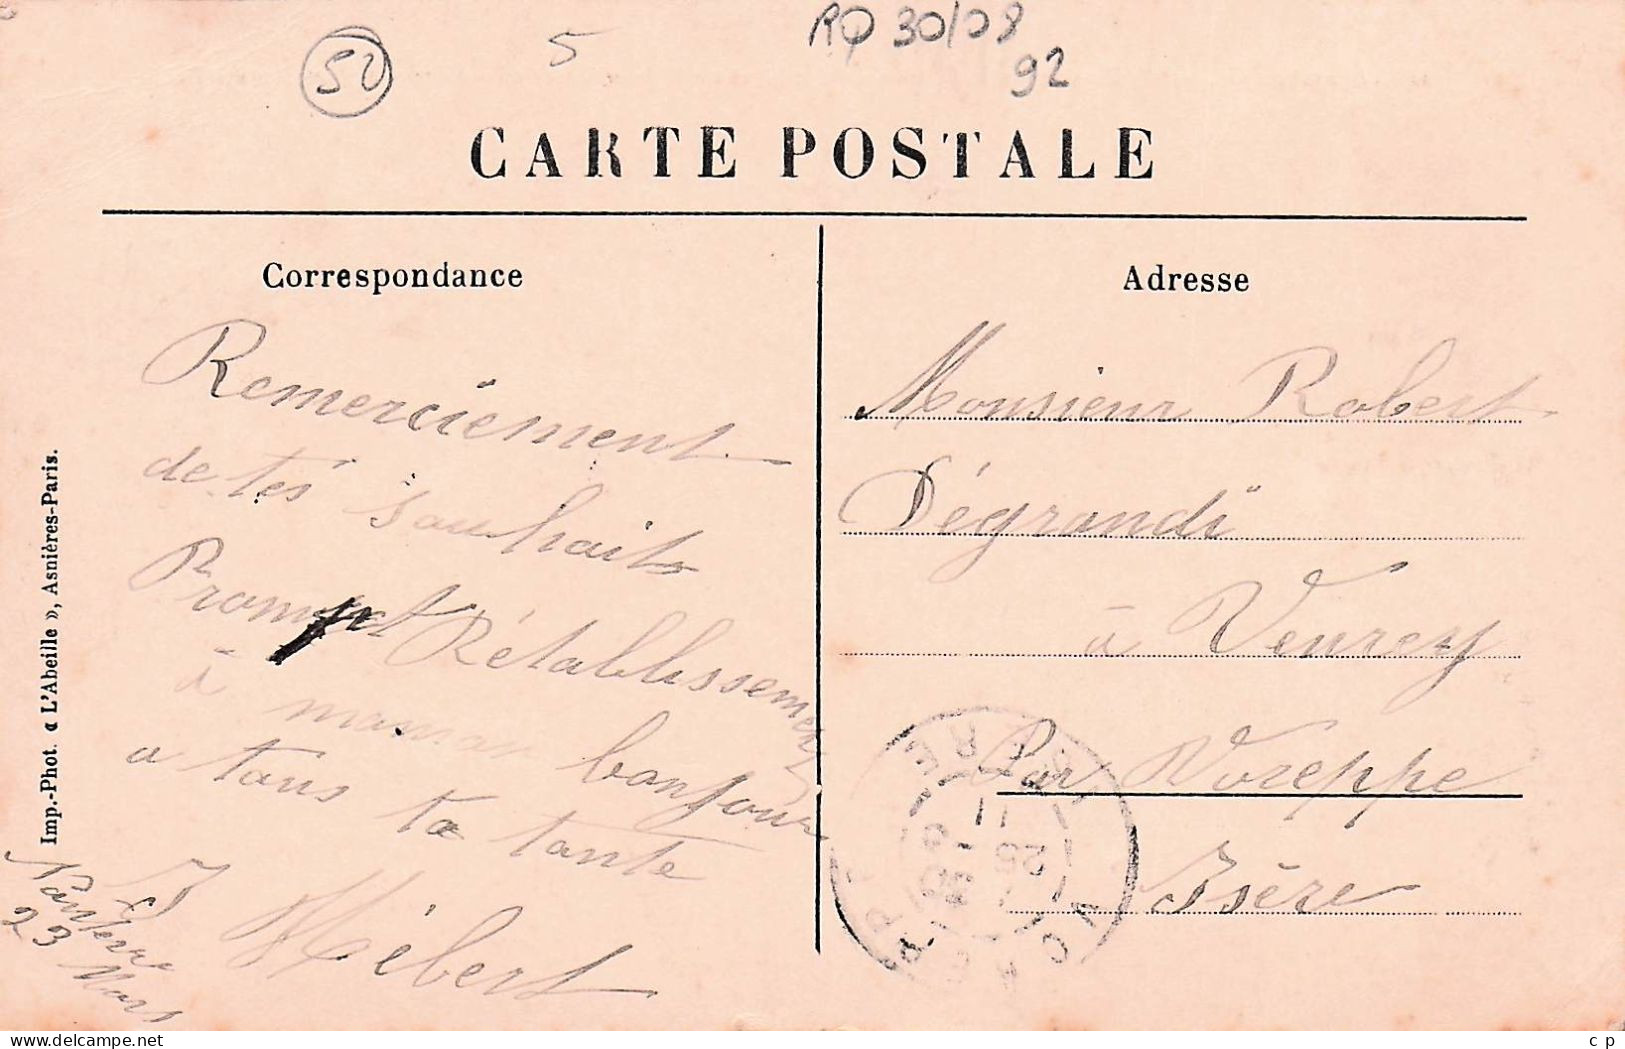 50
5
RQ 30/08
92
CARTE POSTALE
Correspondance
Adresse
Remerciement
de tes souhaits
Prompt Rétablissement
à maman bonjour
a tous ta tante
J Hébert
Nanterre
23 Mars
Monsieur Robert
Dégrandi
à Veurey
Par Voreppe
Isère
VOREPPE
ISERE
11
25 -3
Imp.-Phot. « L'Abeille », Asnières-Paris.
delcampe.net
c p